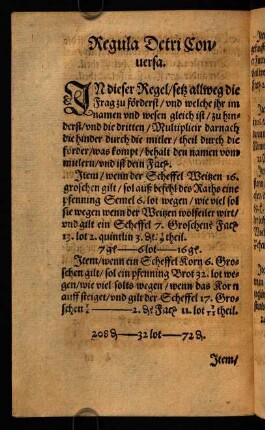 Regula Detri Con⸗
uersa.
IN dieser Regel/setz allweg die
Frag zu förderst/vnd welche ihr im
namen vnd wesen gleich ist/zu hin⸗
derst/vnd die dritten/Multiplier darnach
die hinder durch die mitler/theil durch die
förder/was kompt/behalt den namen vom
mitlern/vnd ist dein Fac.
Item/wenn der Scheffel Weitzen 16.
groschen gilt/sol auß befehl des Raths eine
pfenning Semel 6. lot wegen/wie viel sol
sie wegen wenn der Weitzen wolfeiler wirt/
vnd gilt ein Scheffel 7. Groschen? Fac
13. lot 2. quintlin 3. theil.
7 6 lot 16
Item/wenn ein Scheffel Korn 6. Gro⸗
schen gilt/sol ein pfenning Brot 32. lot we⸗
gen/wie viel solts wegen/wenn das Korn
auff steiget/vnd gilt der Scheffel 17. Gro⸗
schen 2. Fac 11. lot theil.
208 32 lot 72
Item/